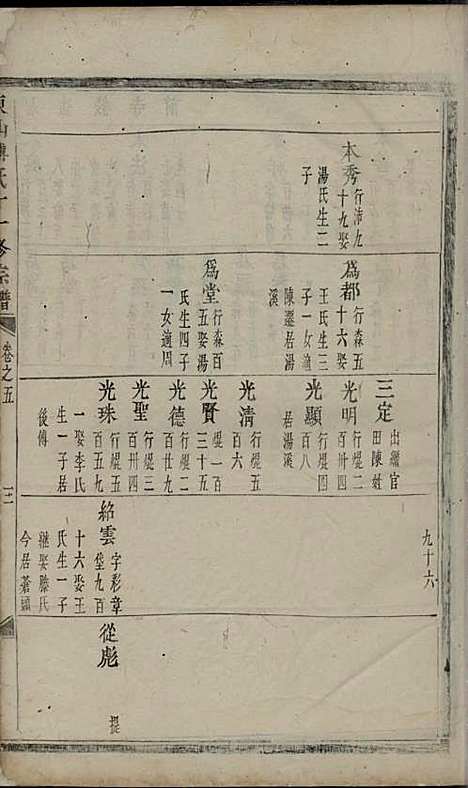 本秀
行沛九
十九娶
湯氏生二
子
為都
行森五
十六娶
王氏生三
子一女適
陳遷居湯
溪
為堂
行森百
五娶湯
氏生四子
一女適周
三定
出繼官
田陳姓
光明
行煶二
百卅四
光顯
行煶四
百八
居湯溪
光清
行煶五
百六
光賢
煶一百
三十五
光德
行煶二
百廿九
光聖
行煶三
百卅四
光珠
行煶五
百五九
一娶李氏
生一子居
後傅
紹雲
字彩章
垡九百
十六娶王
氏生一子
繼娶滕氏
今居蒼頭
從彪
提
九十六
氏十一修宗譜
卷之五